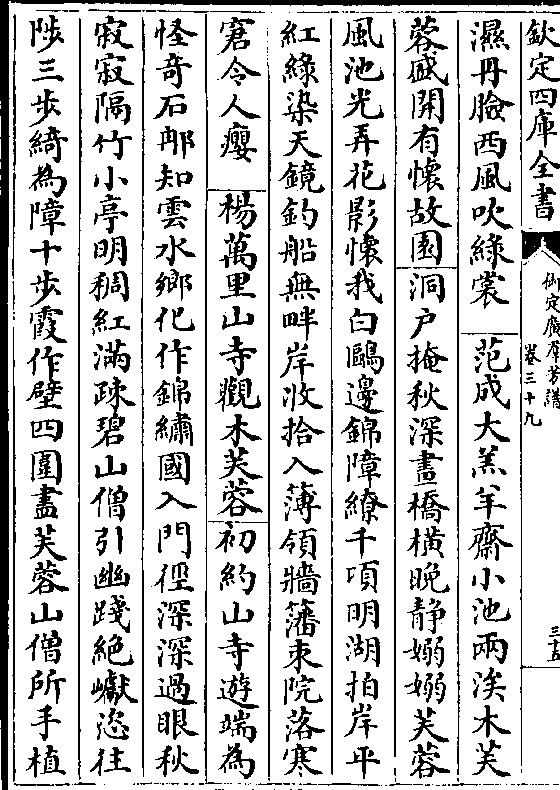 欽定四庫全書
御定廣羣芳譜
卷三十九
三十五
濕丹臉西風吹綠裳 范成大羔羊齋小池兩涘木芙
蓉盛開有懷故園 洞户掩秋深畫橋橫晚静嫋嫋芙蓉
風池光弄花影懷我白鷗邊錦障繚千頃明湖拍岸平
紅綠染天鏡釣船無畔岸收拾入簿領牆藩束院落寒
窘令人癭 楊萬里山寺觀木芙蓉 初約山寺遊端為
怪奇石那知雲水鄉化作錦繡國入門徑深深過眼秋
寂寂隔竹小亭明稠紅滿疎碧山僧引幽踐絶巘恣往
陟三步綺為障十步霞作壁四圍盡芙蓉山僧所手植